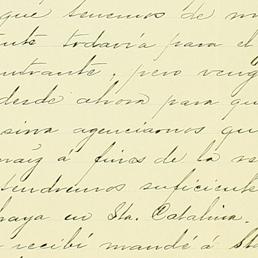 que tenemos de m
ente todavía para el
entrante, pero veng
desde ahora para qu
sirva agenciarnos qu
maíz á fines de la
tendremos suficiente
haya en Sta. Catalina.
recibí mandé á Sta